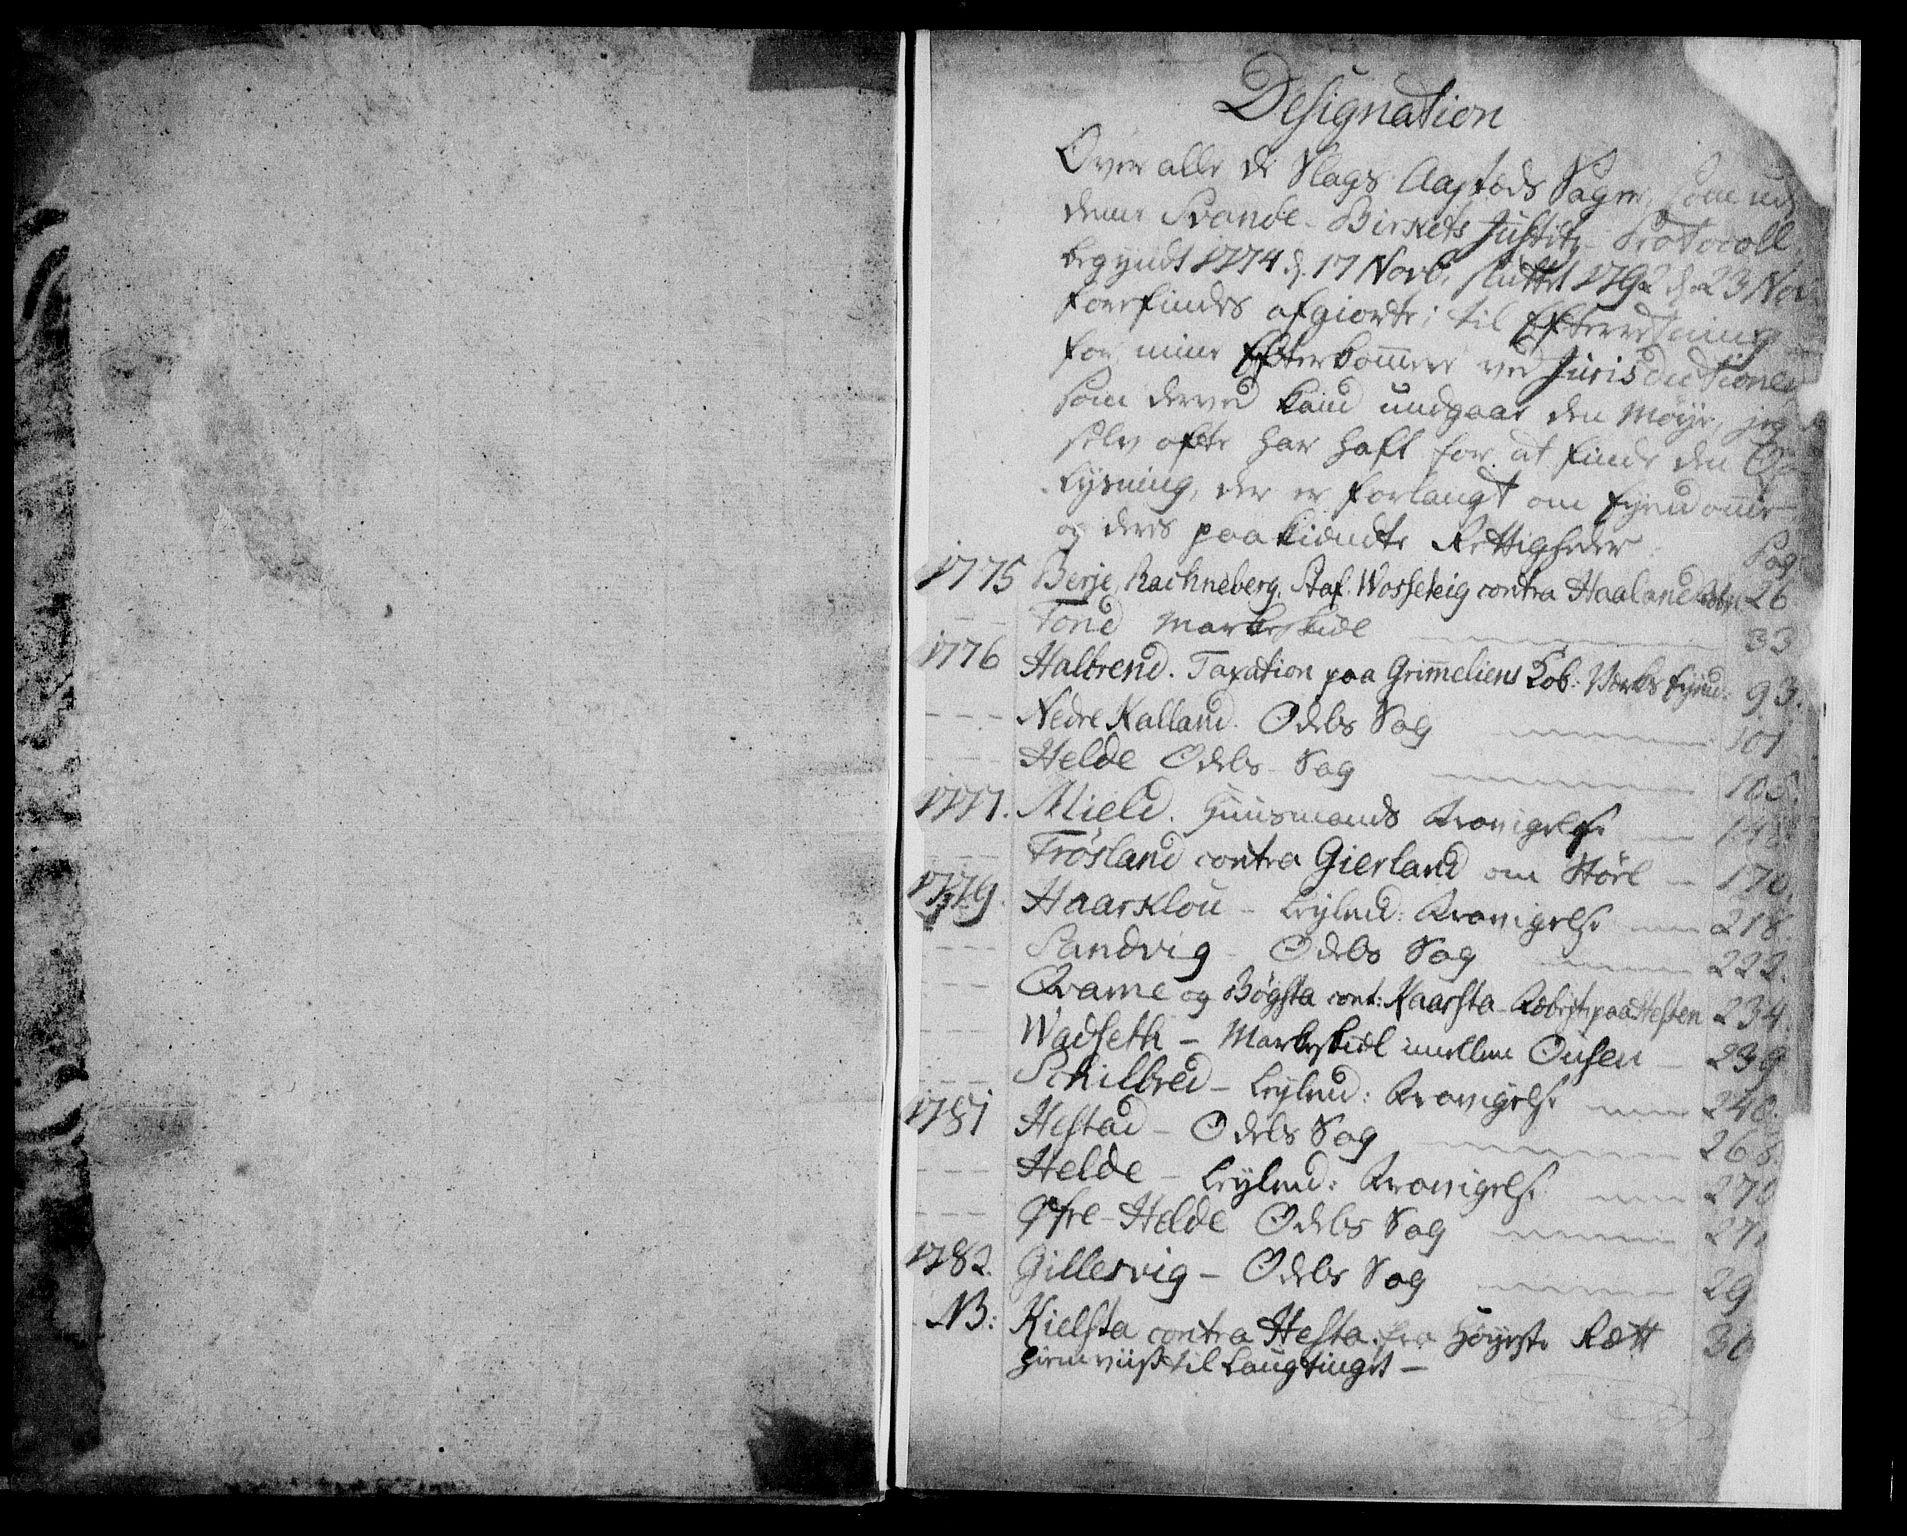 Designation
Over alle de Slags Aasteds Sager, som ud
denne Svanöe-Birkets Justitz-Protocoll,
begyndt 1774 d. 17 Novb, sluttet 1792 d. 23 Nov
forefindes afgiorte; til Efterretning
for mine Efterkommere ved Jurisdictionen
som derved kand undgaae den Møye, jeg
selv ofte har haft for at finde den Op
lysning, der er forlangt om Eyendomme
og deres paakiendte Rettigheder
Pag
1775 Berje, Rachneberg, Staf. Wosseteig contra Haaland 26
--- Tond Markeskiel 33
1776 Halbrend. Taxation paa Grimeliens Kob: Værks Eyend: 93.
--- Nedre Kalland. Odels Sag 101
--- Helde Odels-Sag 105.
1777. Mield. Huusmands Udvigelse
--- Frøsland contra Gierland om Støel 170.
1779. Haarklou - Leylend: 218.
--- Sandvig - Odels Sag 222.
--- Qvame og Bøgsta cont: Kaarsta - paa Hesten 234.
--- Wadseth - Markeskiel imellem Ousen - 239
--- Schilbred - Leylend: 240.
1781 Hestad - Odels Sag 268.
--- Helde - Leylend: 270
--- Øfre-Helde Odels Sag 27
1782. Gillesvig - Odels Sag 29
NB: Kielsta contra Hesta, fra Høyeste Rætt 30
hiemviist til Laugtinget -